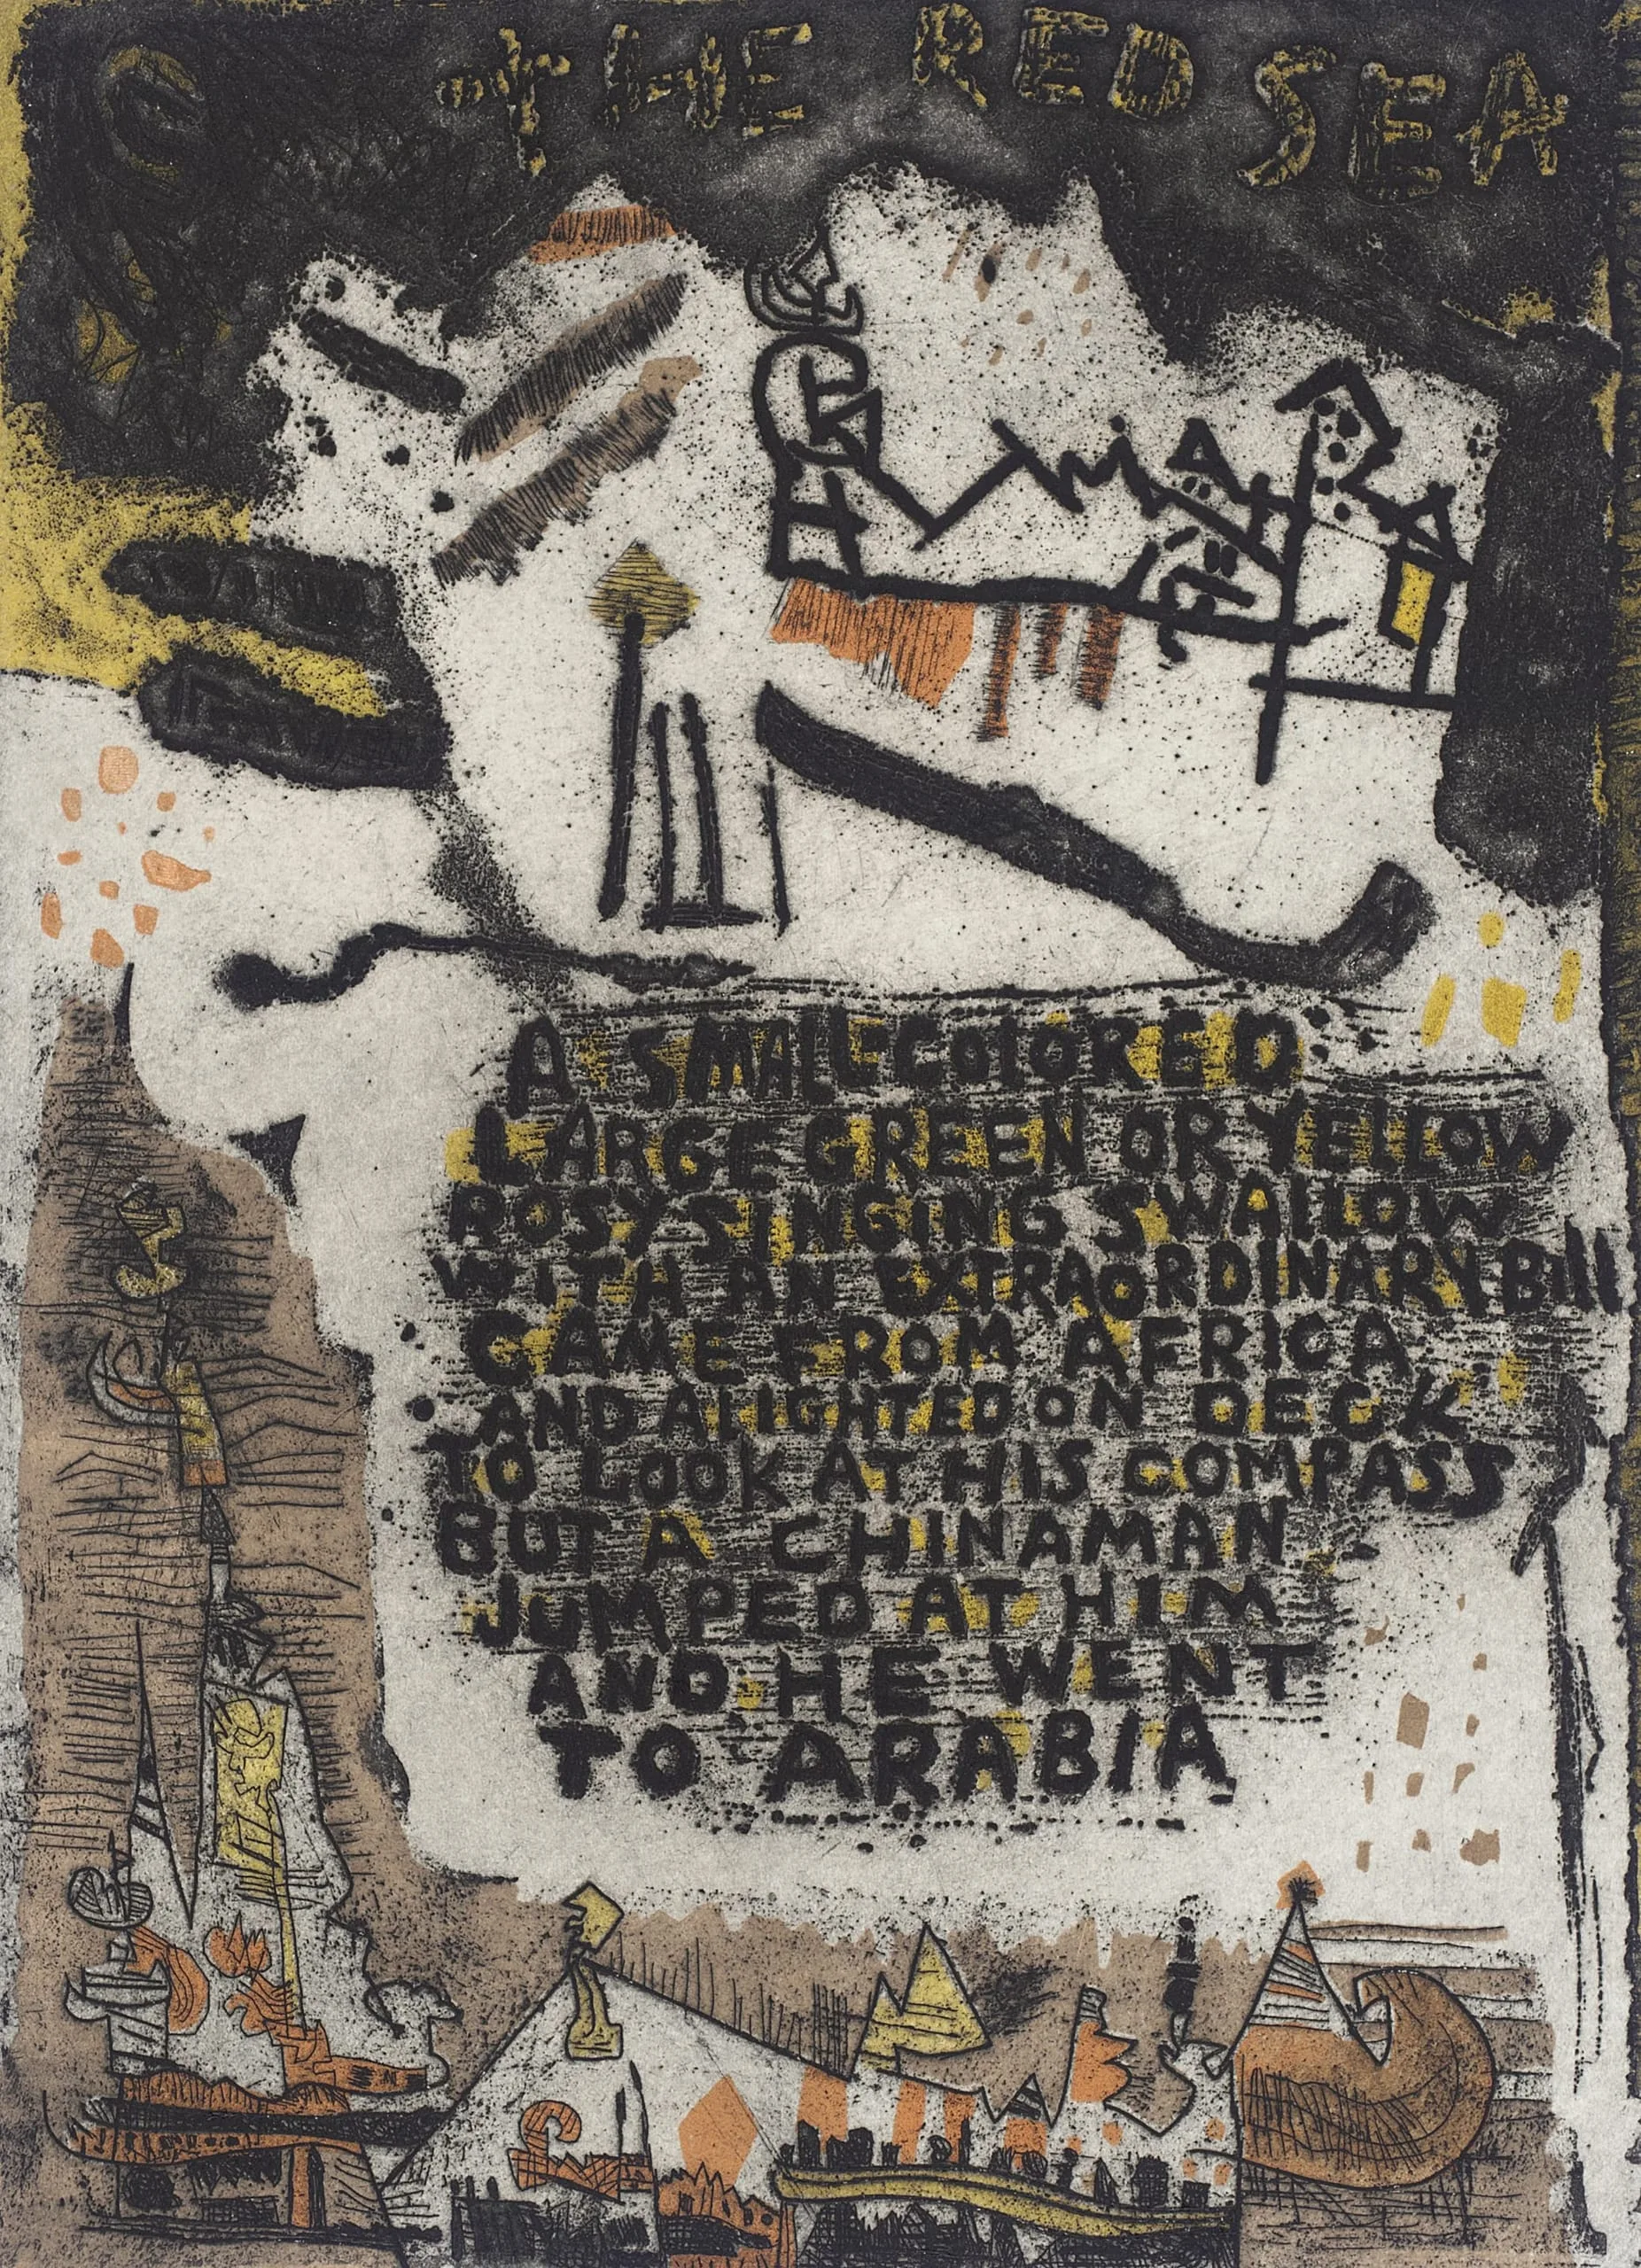 THE RED SEA
A SMALL-COLORED
LARGE GREEN OR YELLOW
ROSY SINGING SWALLOW
WITH AN EXTRAORDINARY Bill
CAME FROM AFRICA
AND ALIGHTED ON DECK
TO LOOK AT HIS COMPASS
BUT A CHINAMAN
JUMPED AT HIM
AND HE WENT
TO ARABIA